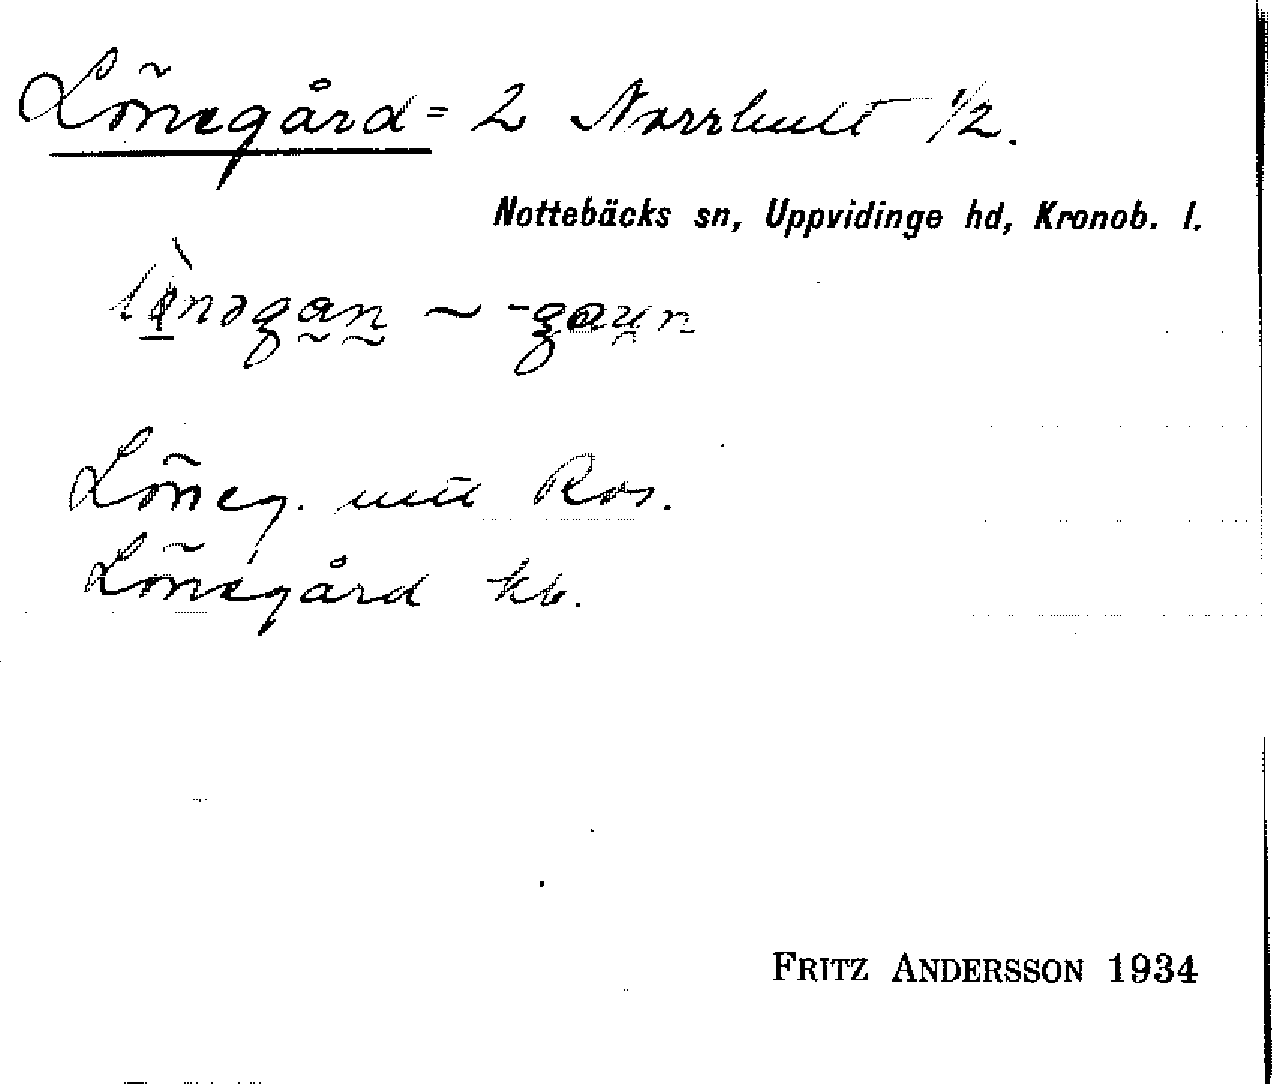 Lönegård = 2 Norrhult 1/2.
Nottebäcks sn, Uppvidinge hd, Kronob. l.
Löneg. utt Ros.
Lönegård kb.
FRITZ ANDERSSON 1934